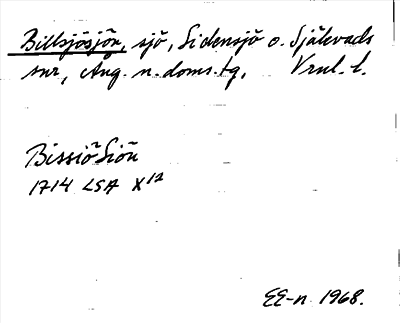 Billsjösjön, sjö, Sidensjö o. Själevads
snr, Ång. n. doms.tg, Vnl. l.
Bissiö Siön
1714 LSA X12
EE-n 1968.